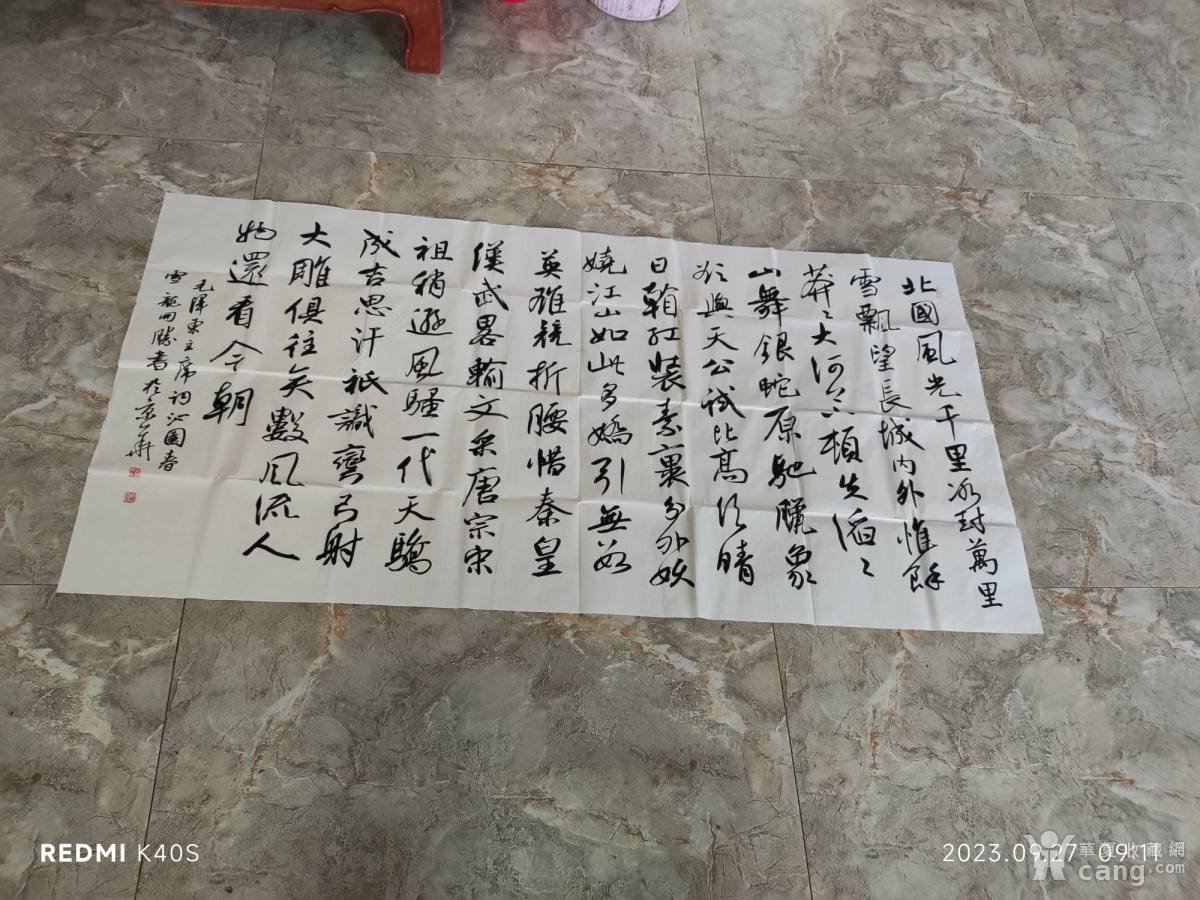 北國風光千里冰封萬里
雪飄望長城内外惟餘
莽〻大河上下頓失滔〻
山舞銀蛇原馳臘象
欲與天公試比高須晴
日紅裝素裹分外妖
嬈江山如此多嬌引無數
英雄競折腰惜秦皇
漢武畧輸文采唐宗宋
祖稍遜風騷一代天驕
成吉思汗祇識彎弓射
大雕俱往矣數風流人
物還看今朝
毛澤東主席詞沁園春
雪龍田勝書於京華
REDMI K40S
2023.09.27 09:11
華夏收藏網
cang.com